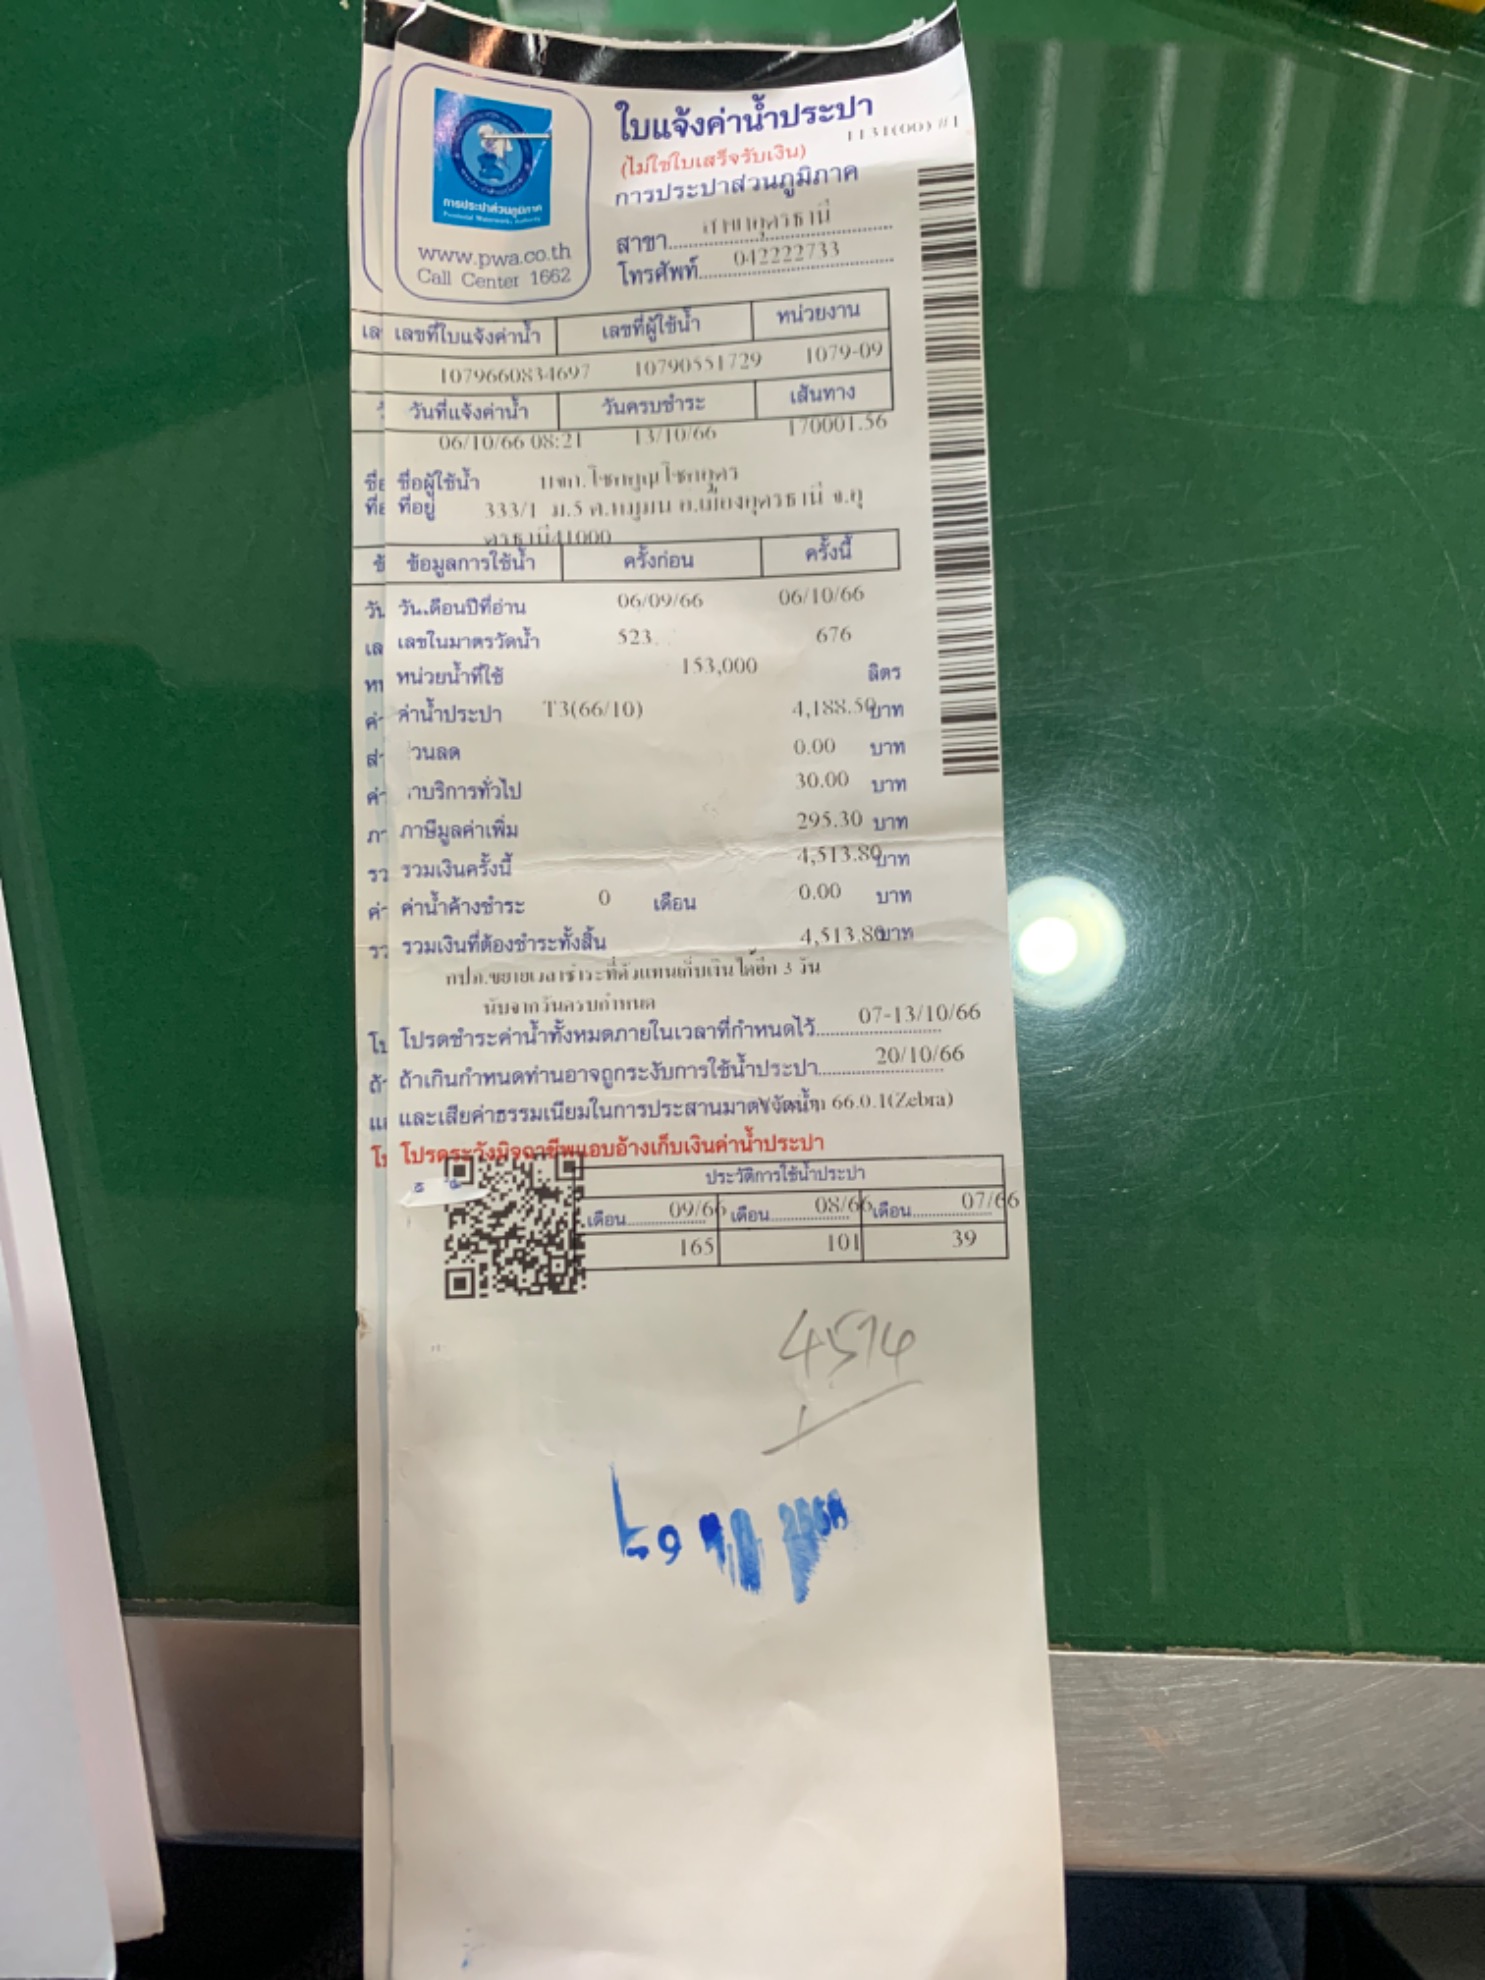 ใบแจ้งค่าน้ำประปา
1131(00) #1
(ไม่ใช่ใบเสร็จรับเงิน)
การประปาส่วนภูมิภาค
สาขา สาขาอุดรธานี
โทรศัพท์ 042222733
การประปาส่วนภูมิภาค
Provincial Waterworks Authority
www.pwa.co.th
Call Center 1662
เลขที่ใบแจ้งค่าน้ำ เลขที่ผู้ใช้น้ำ หน่วยงาน
1079660834697 10790551729 1079-09
วันที่แจ้งค่าน้ำ วันครบชำระ เส้นทาง
06/10/66 08:21 13/10/66 170001.56
ชื่อผู้ใช้น้ำ หจก.โชคบุญโชคอุดร
ที่อยู่ 333/1 ม.5 ต.หมูม่น อ.เมืองอุดรธานี จ.อุ
ดรธานี41000
ข้อมูลการใช้น้ำ ครั้งก่อน ครั้งนี้
วัน.เดือนปีที่อ่าน 06/09/66 06/10/66
เลขในมาตรวัดน้ำ 523 676
หน่วยน้ำที่ใช้ 153,000 ลิตร
ค่าน้ำประปา T3(66/10) 4,188.50 บาท
วนลด 0.00 บาท
าบริการทั่วไป 30.00 บาท
ภาษีมูลค่าเพิ่ม 295.30 บาท
รวมเงินครั้งนี้ 4,513.80 บาท
ค่าน้ำค้างชำระ 0 เดือน 0.00 บาท
รวมเงินที่ต้องชำระทั้งสิ้น 4,513.80 บาท
กปภ.ขยายเวลาชำระที่ตัวแทนเก็บเงินได้อีก 3 วัน
นับจากวันครบกำหนด
โปรดชำระค่าน้ำทั้งหมดภายในเวลาที่กำหนดไว้ 07-13/10/66
ถ้าเกินกำหนดท่านอาจถูกระงับการใช้น้ำประปา 20/10/66
และเสียค่าธรรมเนียมในการประสานมาตรวัดน้ำ 66.0.1(Zebra)
โปรดระวังมิจฉาชีพแอบอ้างเก็บเงินค่าน้ำประปา
ประวัติการใช้น้ำประปา
เดือน 09/66 เดือน 08/66 เดือน 07/66
165 101 39
4514